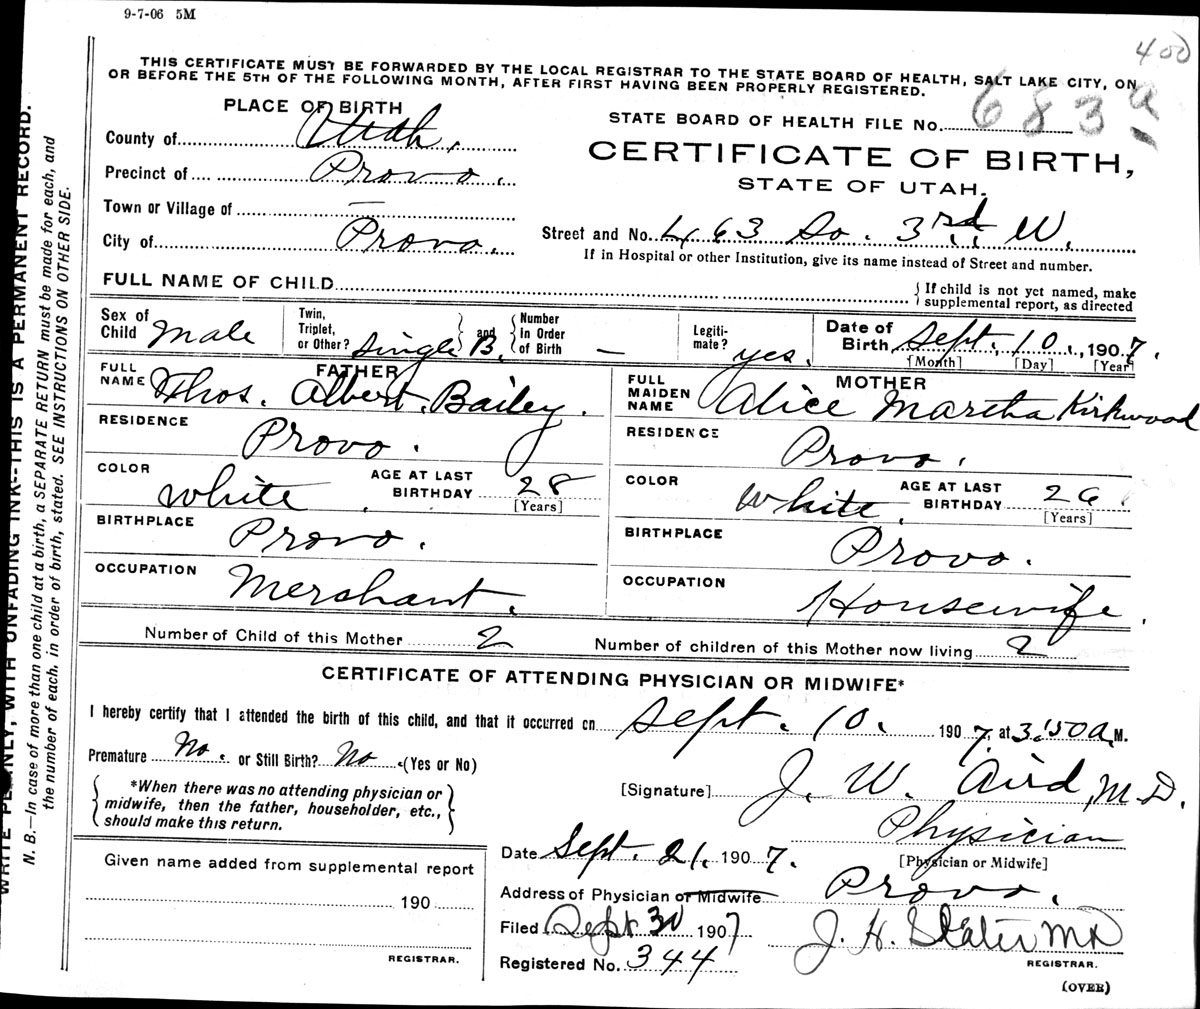 9-7-06 5M
400
THIS CERTIFICATE MUST BE FORWARDED BY THE LOCAL REGISTRAR TO THE STATE BOARD OF HEALTH, SALT LAKE CITY, ON
OR BEFORE THE 5TH OF THE FOLLOWING MONTH, AFTER FIRST HAVING BEEN PROPERLY REGISTERED.
PLACE OF BIRTH
STATE BOARD OF HEALTH FILE No. 683 a
County of Utah.
CERTIFICATE OF BIRTH,
Precinct of Provo.
STATE OF UTAH.
Town or Village of —
City of Provo.
Street and No. 463 So. 3rd W.
If in Hospital or other Institution, give its name instead of Street and number.
FULL NAME OF CHILD
{ If child is not yet named, make
supplemental report, as directed
Sex of Child Male
Twin, Triplet, or Other? Single B. and Number In Order of Birth —
Legiti- mate? yes.
Date of Birth Sept. 10., 1907.
[Month] [Day] [Year]
FATHER
FULL NAME Thos. Albert Bailey.
RESIDENCE Provo.
COLOR white. AGE AT LAST BIRTHDAY 28
[Years]
BIRTHPLACE Provo.
OCCUPATION Merchant.
MOTHER
FULL MAIDEN NAME Alice Martha Kirkwood
RESIDENCE Provo.
COLOR White. AGE AT LAST BIRTHDAY
[Years]
BIRTHPLACE Provo.
OCCUPATION Housewife.
Number of Child of this Mother 2
Number of children of this Mother now living 2
CERTIFICATE OF ATTENDING PHYSICIAN OR MIDWIFE*
I hereby certify that I attended the birth of this child, and that it occurred on Sept. 10. 1907, at 3:50 a. M.
Premature No. or Still Birth? No. (Yes or No)
{ *When there was no attending physician or
midwife, then the father, householder, etc.,
should make this return. }
[Signature] J. W. Aird, M.D.
Physician
[Physician or Midwife]
Date Sept. 21. 1907.
Address of Physician or Midwife Provo.
Filed Sept 30 1907
J. H. Slater MD
REGISTRAR.
Registered No. 344
(OVER)
Given name added from supplemental report
190
REGISTRAR.
WRITE PLAINLY, WITH UNFADING INK--THIS IS A PERMANENT RECORD.
N. B.—In case of more than one child at a birth, a SEPARATE RETURN must be made for each, and
the number of each, in order of birth, stated. SEE INSTRUCTIONS ON OTHER SIDE.